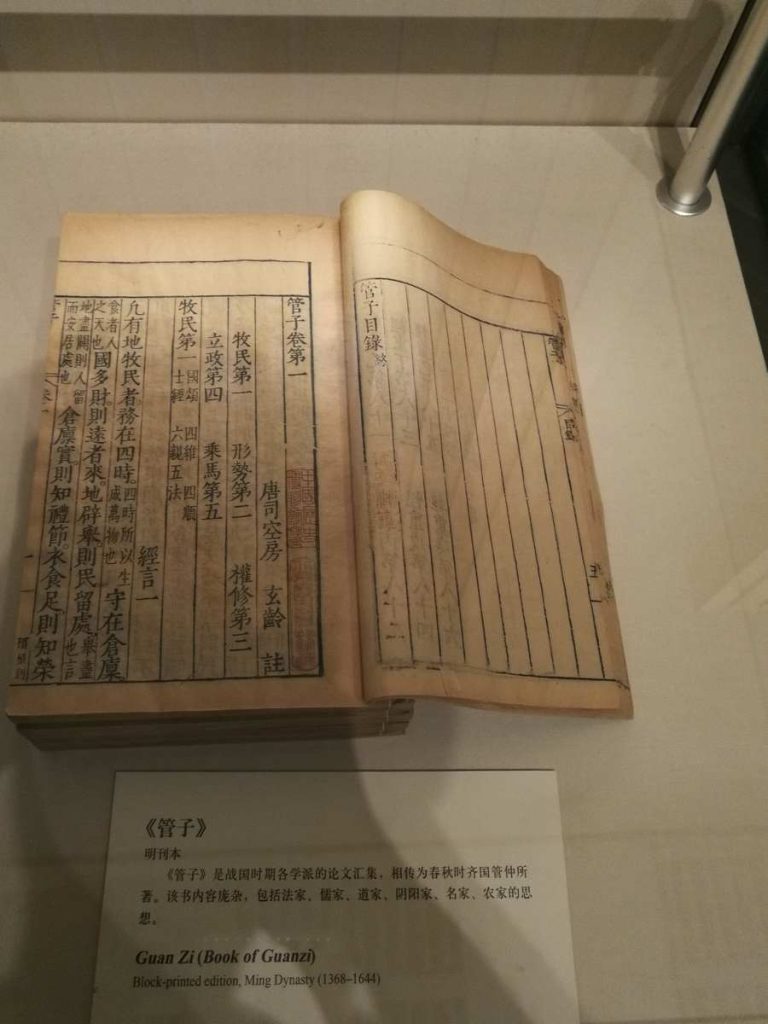 管子目錄終
管子卷第一
唐司空房 玄齡 註
牧民第一 形勢第二 權修第三
立政第四 乘馬第五
牧民第一 國頌 四維 四順 士經 六親五法
經言一
凡有地牧民者。務在四時。四時所以生成萬物也守在倉廩
食者人之天也國多財。則遠者來。地辟舉。則民留處。舉盡也言
地盡闢則人留而安居處也倉廩實。則知禮節。衣食足。則知榮
《管子》
明刊本
《管子》是战国时期各学派的论文汇集，相传为春秋时齐国管仲所
著。该书内容庞杂，包括法家、儒家、道家、阴阳家、名家、农家的思
想。
Guan Zi (Book of Guanzi)
Block-printed edition, Ming Dynasty (1368–1644)